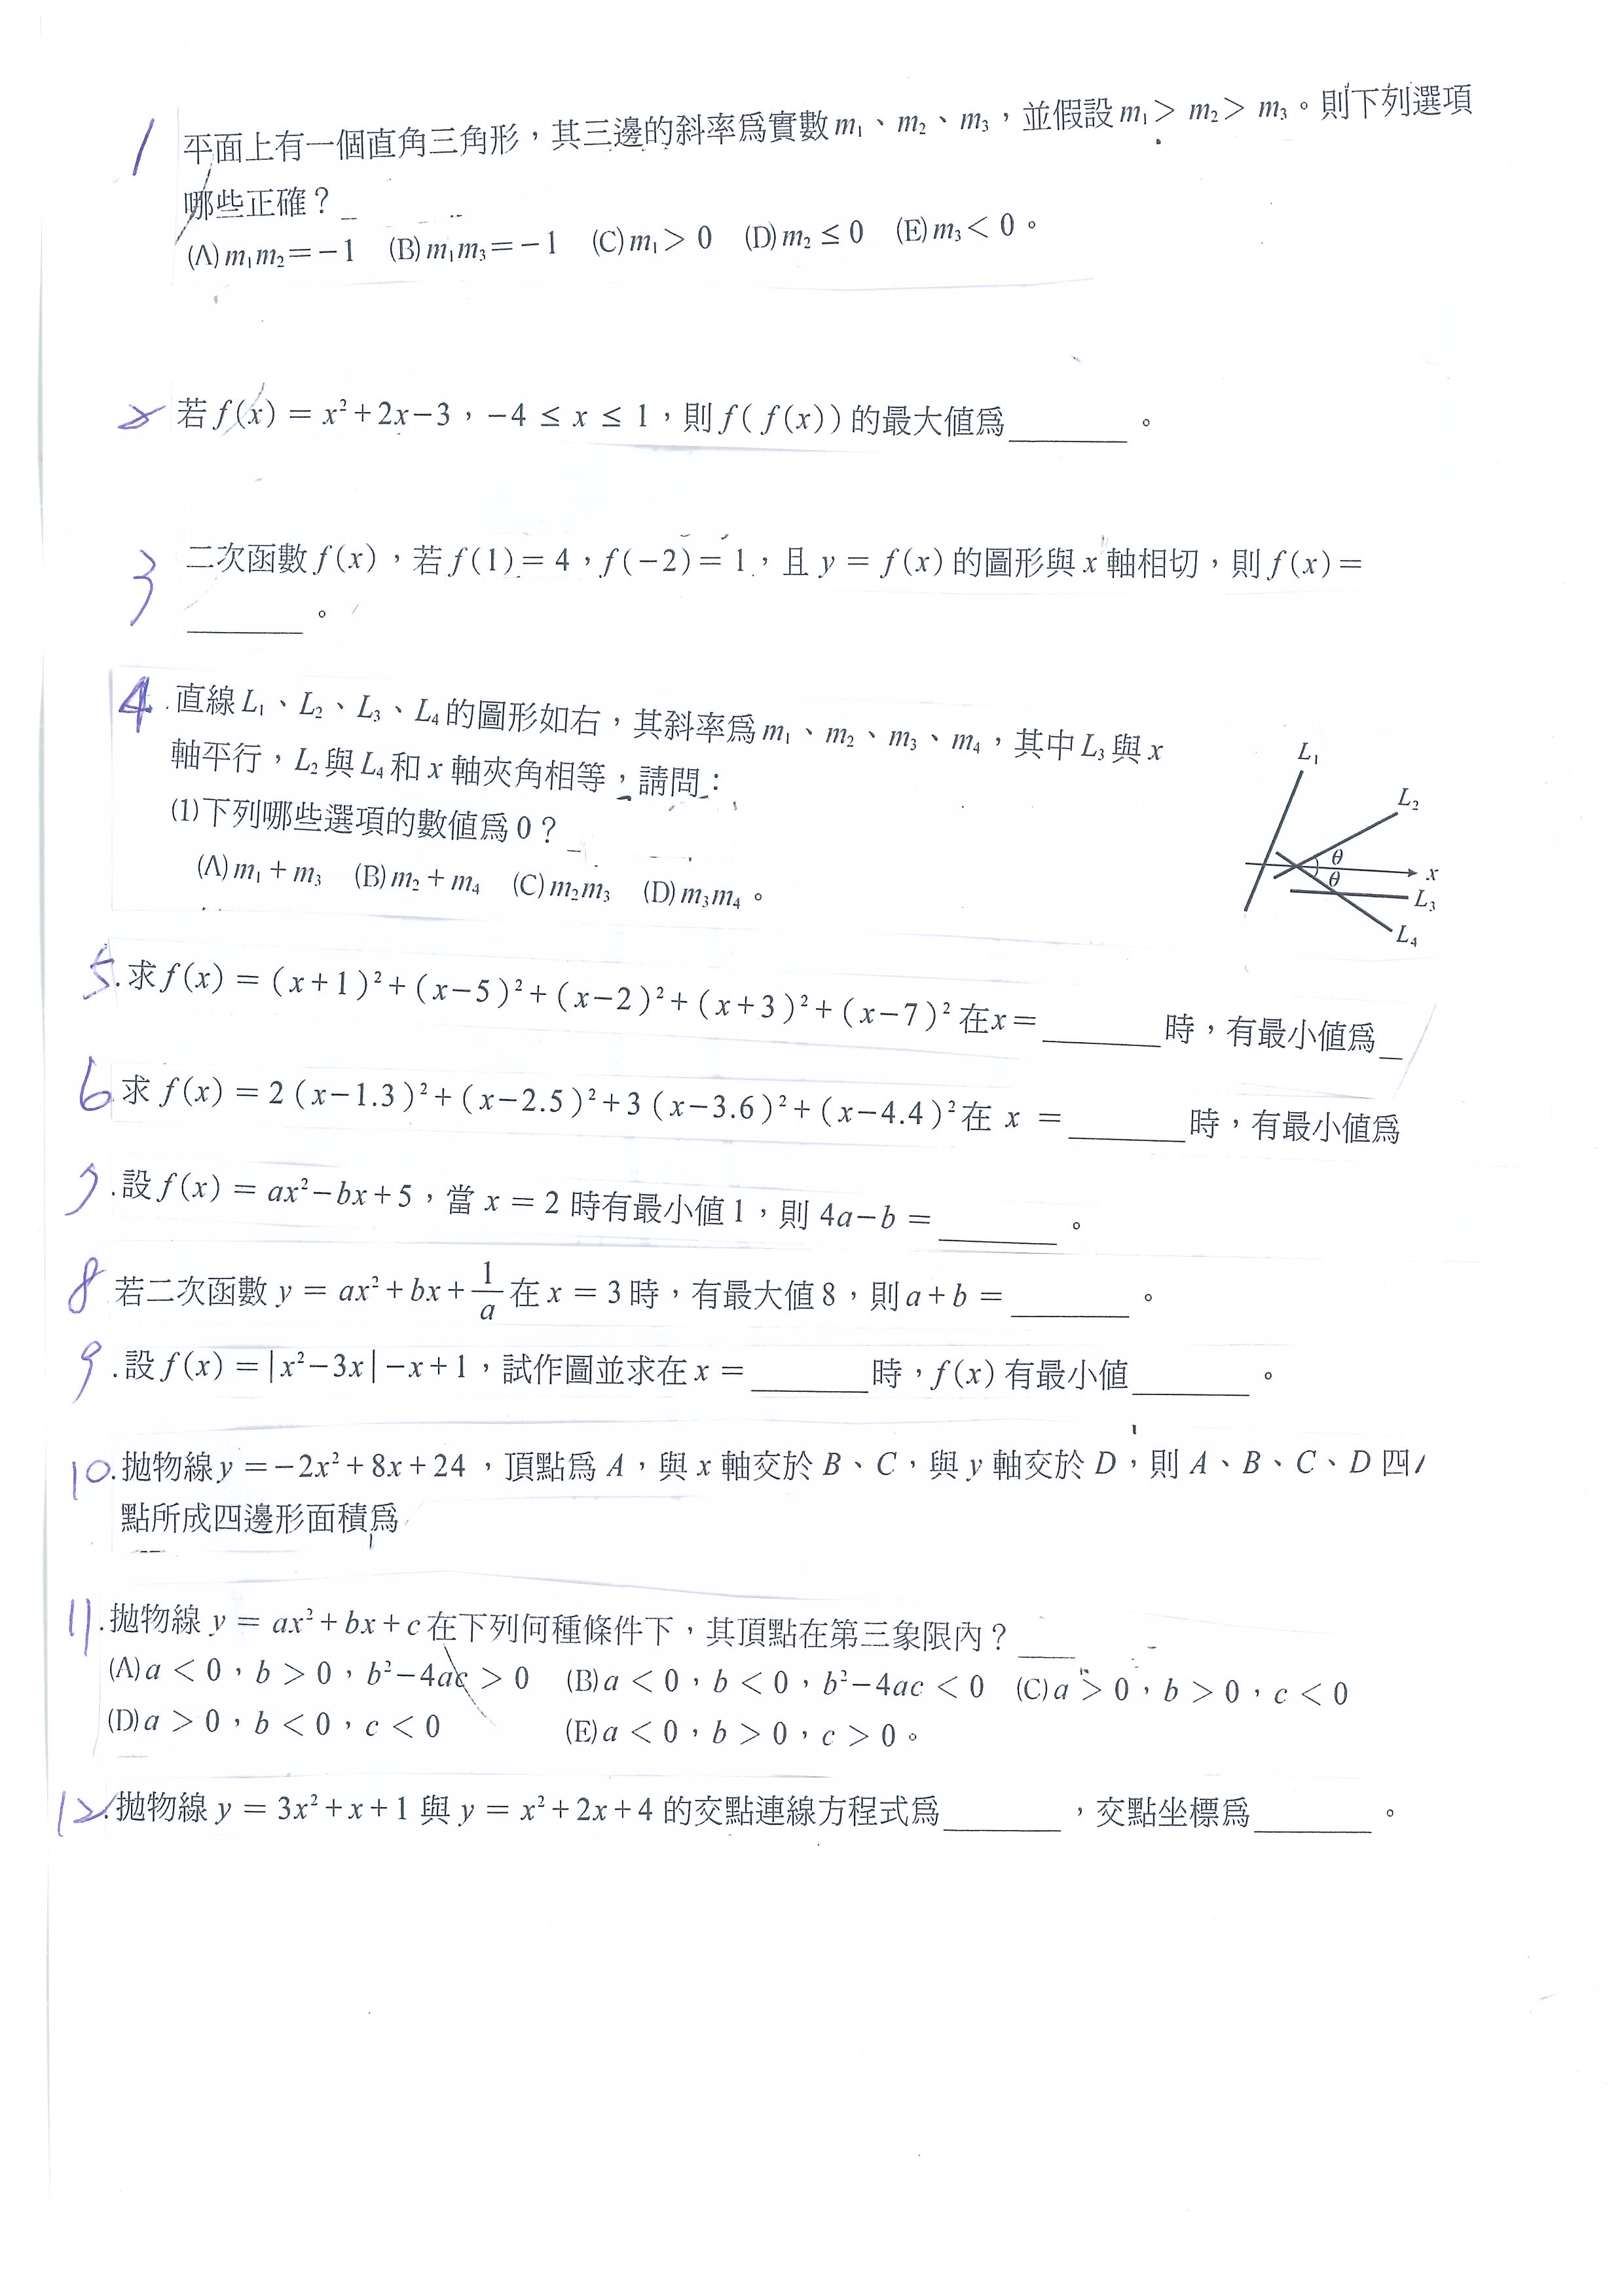 1 平面上有一個直角三角形，其三邊的斜率爲實數m₁、m₂、m₃，並假設m₁＞m₂＞m₃。則下列選項
哪些正確？
(A)m₁m₂=−1 (B)m₁m₃=−1 (C)m₁＞0 (D)m₂≤0 (E)m₃＜0。
2 若f(x)=x²+2x−3，−4≤x≤1，則f(f(x))的最大值爲______。
3 二次函數f(x)，若f(1)=4，f(−2)=1，且y=f(x)的圖形與x軸相切，則f(x)=
______。
4.直線L₁、L₂、L₃、L₄的圖形如右，其斜率爲m₁、m₂、m₃、m₄，其中L₃與x
軸平行，L₂與L₄和x軸夾角相等，請問：
(1)下列哪些選項的數值爲0？
(A)m₁+m₃ (B)m₂+m₄ (C)m₂m₃ (D)m₃m₄。
L₁
L₂
θ
θ
x
L₃
L₄
5.求f(x)=(x+1)²+(x−5)²+(x−2)²+(x+3)²+(x−7)²在x=______時，有最小值爲_
6.求f(x)=2(x−1.3)²+(x−2.5)²+3(x−3.6)²+(x−4.4)²在x=______時，有最小值爲
7.設f(x)=ax²−bx+5，當x=2時有最小值1，則4a−b=______。
8 若二次函數y=ax²+bx+1/a在x=3時，有最大值8，則a+b=______。
9.設f(x)=|x²−3x|−x+1，試作圖並求在x=______時，f(x)有最小值______。
10.拋物線y=−2x²+8x+24，頂點爲A，與x軸交於B、C，與y軸交於D，則A、B、C、D四
點所成四邊形面積爲
11.拋物線y=ax²+bx+c在下列何種條件下，其頂點在第三象限內？___
(A)a＜0，b＞0，b²−4ac＞0 (B)a＜0，b＜0，b²−4ac＜0 (C)a＞0，b＞0，c＜0
(D)a＞0，b＜0，c＜0 (E)a＜0，b＞0，c＞0。
12.拋物線y=3x²+x+1與y=x²+2x+4的交點連線方程式爲______，交點坐標爲______。